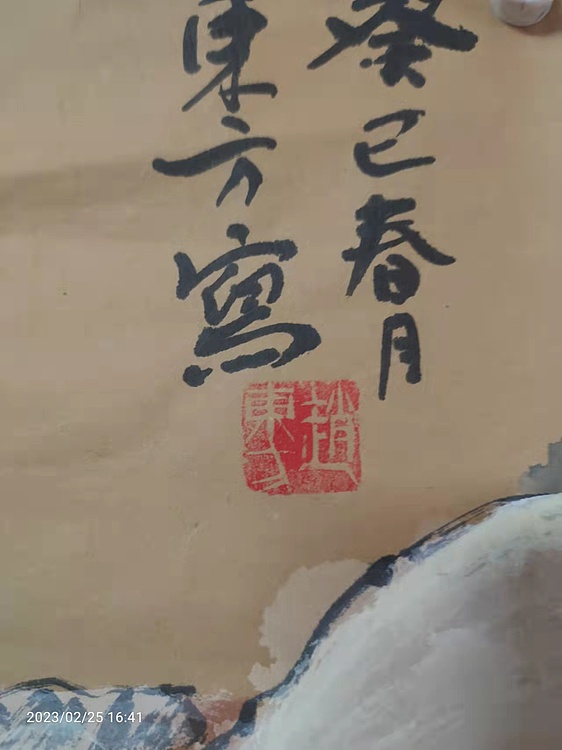 癸巳春月
東方寫
趙東方
2023/02/25 16:41